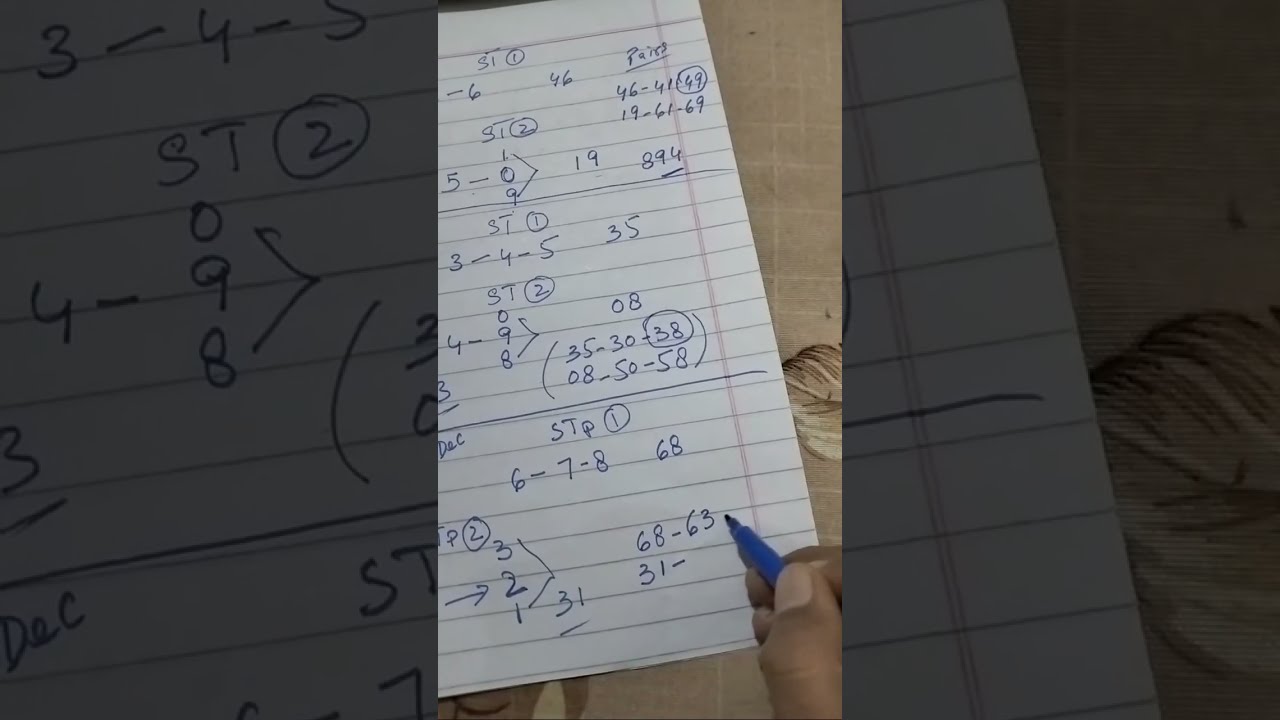 ST ① Pairs
- 6 46 46-41-49
19-61-69
ST ②
1
5 - 0 19 894
9
ST ①
3-4-5 35
ST ②
0 08
4 - 9 35-30-38
8 08-50-58
3
Dec STp ①
6-7-8 68
Tp ②
3 68-63
→ 2 31-
1 31